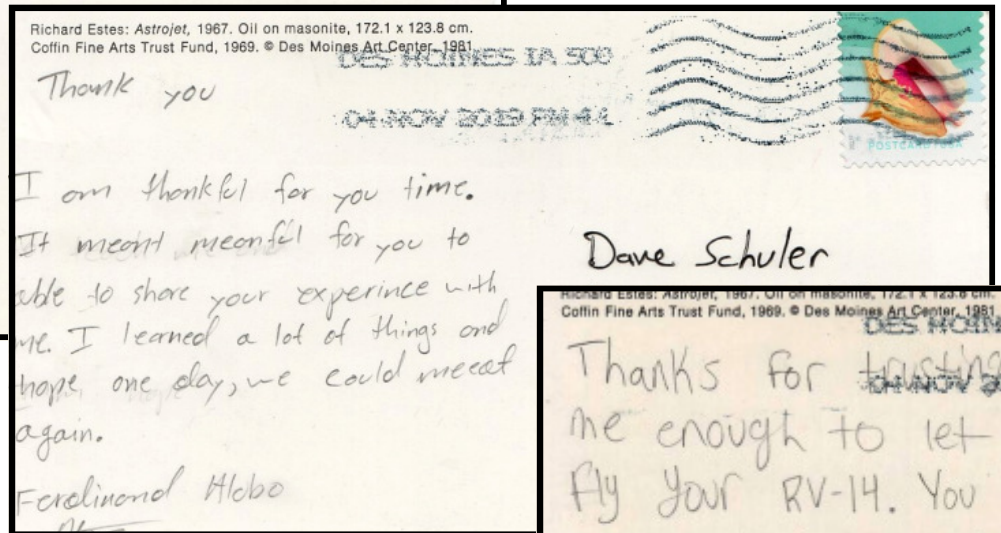 Richard Estes: Astrojet, 1967. Oil on masonite, 172.1 x 123.8 cm.
Coffin Fine Arts Trust Fund, 1969. © Des Moines Art Center, 1981
DES MOINES IA 500
04 NOV 2019 PM 4 L
POSTCARD USA
Thank you
I am thankful for you time.
It meant meanful for you to
able to share your experince with
me. I learned a lot of things and
hope one day, we could meeat
again.
Ferdinand
Dave Schuler
Richard Estes: Astrojet, 1967. Oil on masonite, 172.1 x 123.8 cm.
Coffin Fine Arts Trust Fund, 1969. © Des Moines Art Center, 1981
DES MOIN
04 NOV 2
Thanks for trusting
me enough to let
Fly your RV-14. You